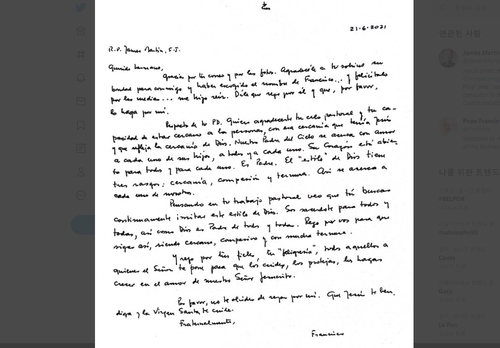 21-6-2021
R.P. James Martin, S.J.
Querido hermano,
Gracias por tu correo y por las fotos. Agradecele a tu sobrino su
bondad para conmigo y haber escogido el nombre de Francisco... y felicítalo
por las medias... me hizo reír. Dile que rezo por él y que, por favor,
lo haga por mí.
Respecto de tu P.D. Quiero agradecerte tu celo pastoral y tu ca-
pacidad de estar cercano a las personas, con esa cercanía que tenía Jesús
y que refleja la cercanía de Dios. Nuestro Padre del Cielo se acerca con amor
a cada uno de sus hijos, a todos y a cada uno. Su corazón está abier
to para todos y para cada uno. Es Padre. El "estilo" de Dios tiene
tres rasgos: cercanía, compasión y ternura. Así se acerca a
cada uno de nosotros.
Pensando en tu trabajo pastoral veo que tú buscas
continuamente imitar este estilo de Dios. Sos sacerdote para todos y
todas, así como Dios es Padre de todos y todas. Rezo por vos para que
sigas así, siendo cercano, compasivo y con mucha ternura.
Y rezo por tus fieles, tu "feligresía", todos aquellos a
quienes el Señor te pone para que los cuides, los protejas, los hagas
crecer en el amor de nuestro Señor Jesucristo.
Por favor, no te olvides de rezar por mí. Que Jesús te ben
diga y la Virgen Santa te cuide.
Fraternalmente,
Francisco